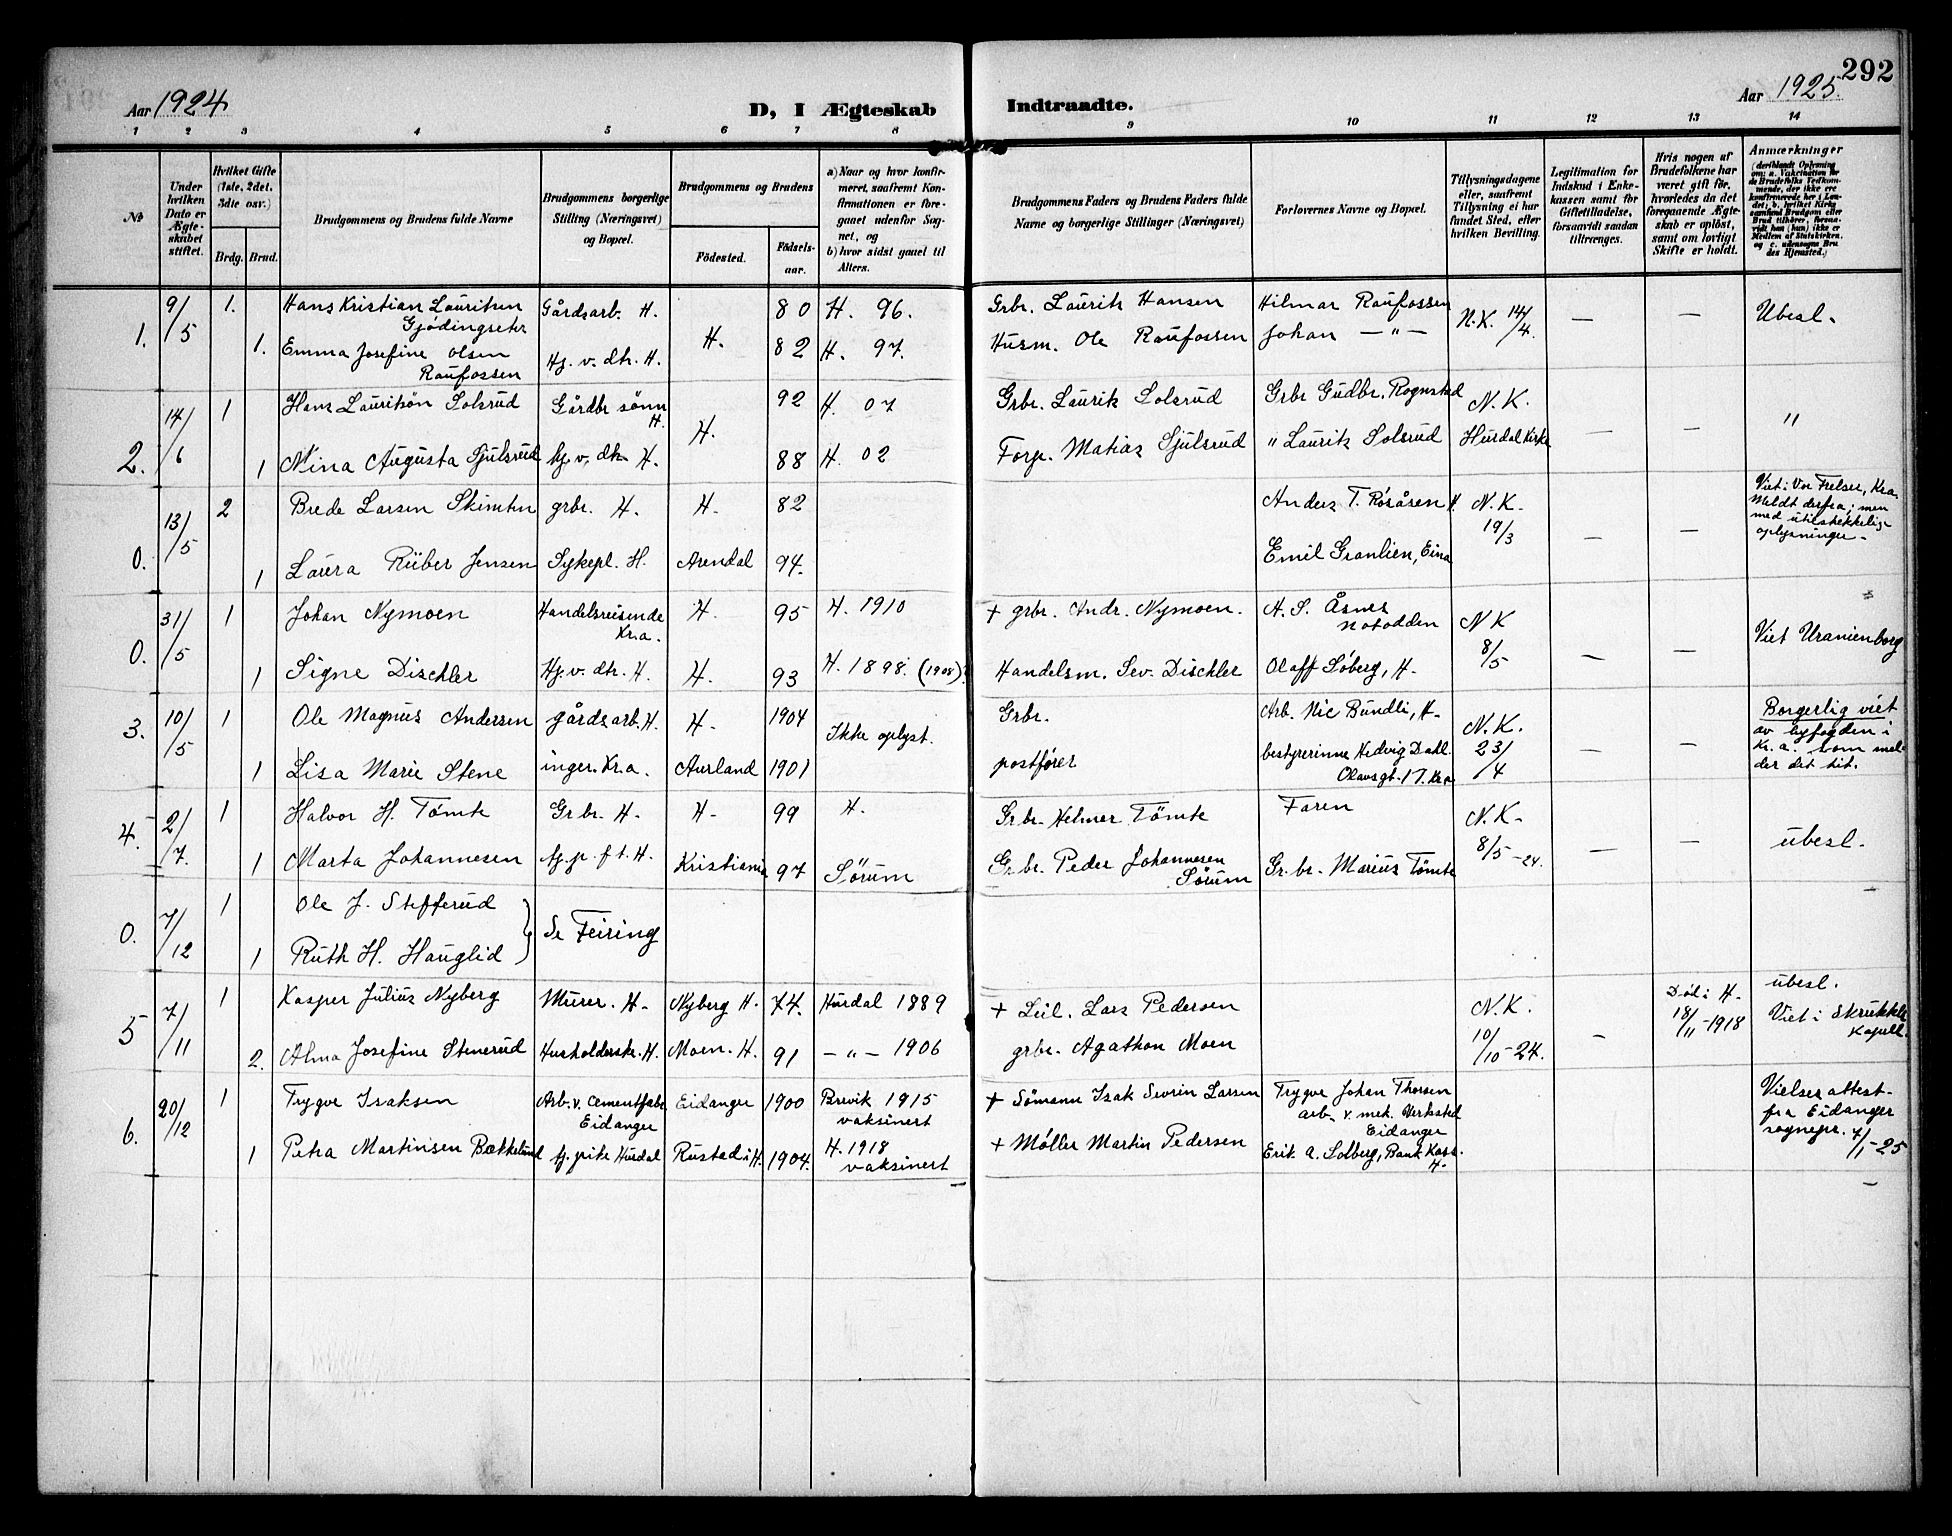 292
Aar 1924
D, I Ægteskab Indtraadte.
Aar 1925.
1 2 3 4 5 6 7 8 9 10 11 12 13 14
No
Under hvilken Dato er Ægteskabet stiftet.
Hvilket Gifte (1ste, 2det, 3die osv.)
Brdg. Brud.
Brudgommens og Brudens fulde Navne
Brudgommens borgerlige Stilling (Næringsvei) og Bopæl.
Brudgommens og Brudens
Födested.
Födselsaar.
a) Naar og hvor konfirmeret, saafremt Konfirmationen er foregaaet udenfor Sognet, og
b) hvor sidst gaaet til Alters.
Brudgommens Faders og Brudens Faders fulde Navne og borgerlige Stillinger (Næringsvei)
Forlovernes Navne og Bopæl.
Tillysningsdagene eller, saafremt Tillysning ei har fundet Sted, efter hvilken Bevilling.
Legitimation for Indskud i Enkekassen samt for Giftetilladelse, forsaavidt saadan tiltrænges.
Hvis nogen af Brudefolkene har været gift før, hvorledes da det foregaaende Ægteskab er opløst, samt om lovligt Skifte er holdt.
Anmærkninger
(deriblandt Oplysning om: a. Vakcination for de Brudefolks Vedkommende, der ikke ere konfirmerede her i Landet; b. hvilket Kirkesamfund Brudgom eller Brud tilhører, forsaavidt han (hun) ikke er Medlem af Statskirken, og c. udensogns Brudes Hjemsted.)
1. 9/5 1. Hans Kristian Lauritsen Gjødingseter Gårdsarb. H. 80 H. 96. Grbr. Laurits Hansen Hilmar Raufossen N.K. 14/4. — — Ubesl.
1. Emma Josefine Olsen Raufossen Hj. v. dtr. H. H. 82 H. 97. Husm. Ole Raufossen Johan — " —
2. 14/6 1 Hans Lauritsøn Solsrud Gårdbr sønn H. 92 H. 07 Grbr. Laurits Solsrud Grbr Gudbr. Rognstad N.K. — — "
1 Nina Augusta Sjulsrud hj. v. dtr H. H. 88 H. 02 Forp. Matias Sjulsrud " Laurits Solsrud Hurdal Kirke
0. 13/5 2 Brede Larsen Skimten grbr. H. H. 82 Anders T. Røsåsen H. N.K. 19/3 — — Viet i Vor Frelser, Kra. Meldt derfra; men med utilstrekkelig oplysninger.
1 Laura Rüber Jensen Sykepl. H. Arendal 94. Emil Granlien, Eina
0. 31/5 1 Johan Nymoen Handelsreisende Kr.a. H. 95 H. 1910 + grbr. Andr. Nymoen. A. S. Åsnes Notodden N K 8/5 — — Viet Uranienborg
1 Signe Dischler Hj. v. dtr. H. H. 93 H. 1898. (1908)? Handelsm. Sev. Dischler Olaff Søberg, H.
3. 10/5 1 Ole Magnus Andersen gårdsarb. H. H. 1904 Ikke oplyst. Grbr. Arb. Nic Bundli, H. N.K. 23/4 — — Borgerlig viet av byfogden i Kr.a. som melder det hit.
1 Lisa Marie Stene inger. Kr.a. Aurland 1901 postfører bestyrerinne Hedvig Dahl Olavsgt. 17 Kr.a
4. 2/7. 1 Halvor H. Tømte Gr br. H. H. 99 H. Gr br. Helmer Tømte Faren N.K. 8/5 -24. — — ubesl.
1 Marta Johannesen hj. p. f t. H. Kristiania 97 Sørum Gr. br. Peder Johannesen Sørum Gr. br. Marius Tømte
0. 7/12 1 Ole J. Stefferud
1 Ruth H. Hauglid } Se Feiring
5 7/11 1 Kasper Julius Nyberg Murer. H. Nyberg H. 74. Hurdal 1889 + Leil. Lars Pedersen N.K. 10/10 -24. — Død i H. 18/11 -1918 ubesl. Viet i Skrukkeli Kapell.
2. Alma Josefine Stenerud Husholderske. H. Moen. H. 91 — " — 1906 grbr. Agathon Moen
6. 20/12 1 Trygve Isaksen Arb. v. Cementfabr Eidanger Eidanger 1900 Brevik 1915 vaksinert + Sømann Isak Sevrin Larsen Trygve Johan Thorsen arb v. mek. Verksted Eidanger Vielses attest fra Eidanger sognepr. 7/1 - 25
1 Petra Martinsen Bækkelund hj. pike Hurdal Rustad i H. 1904. H. 1918 vaksinert + Møller Martin Pedersen Erik A. Solberg, Bank Kass. H.